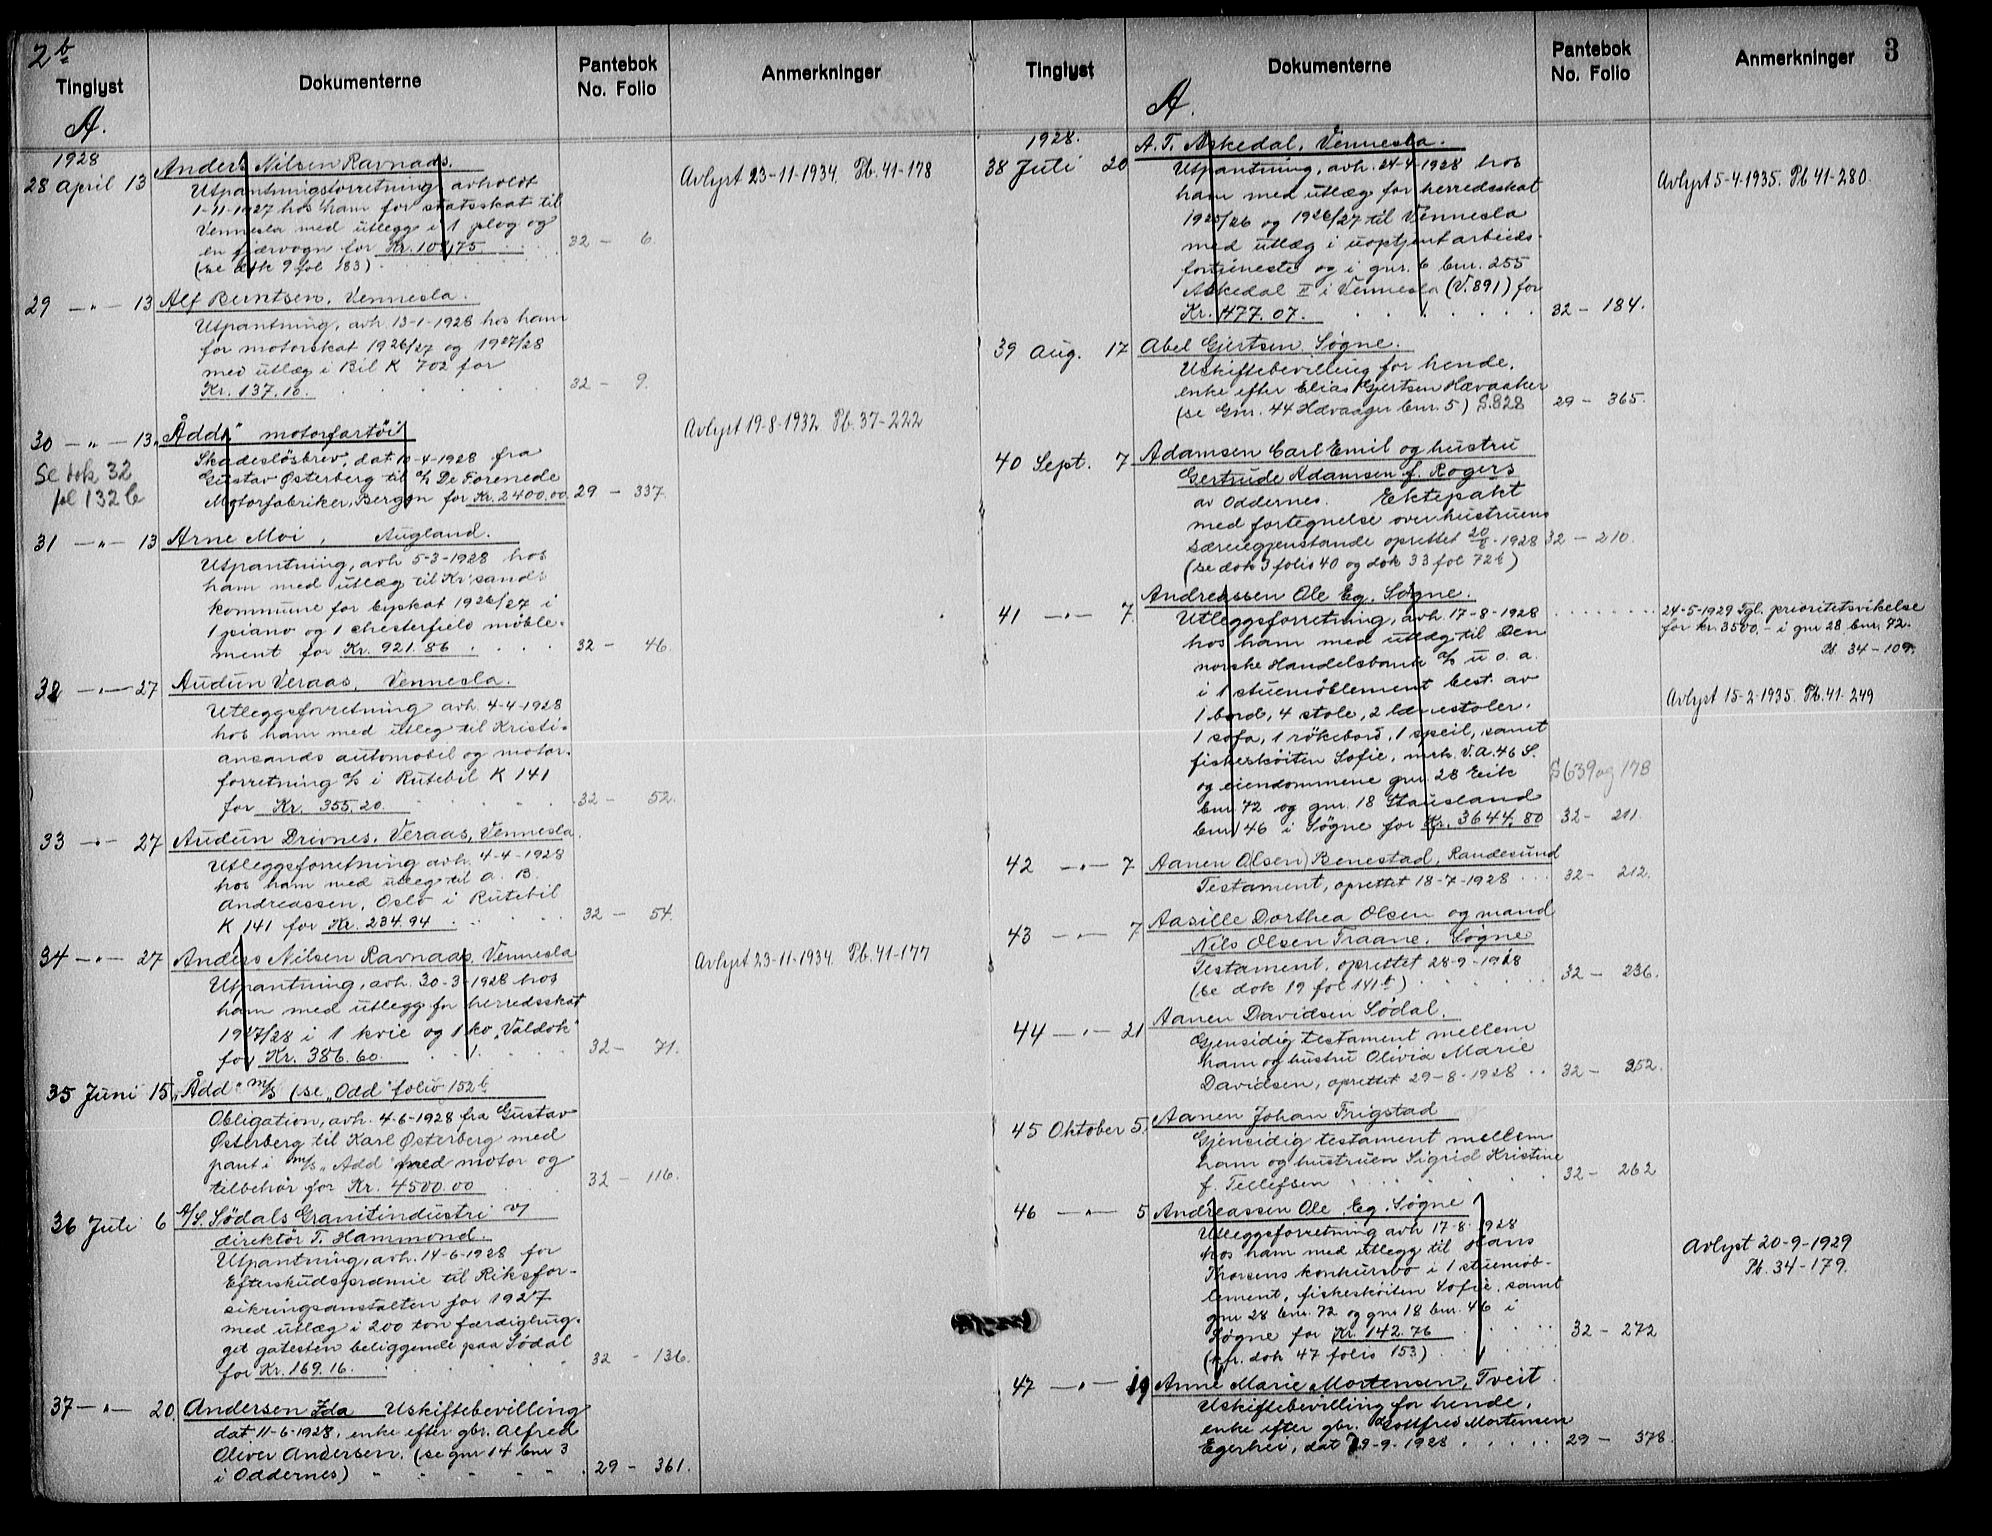 2b
Tinglyst Dokumenterne Pantebok No. Folio Anmerkninger
A.
1928
28 April 13 Anders Nilsen Ravnaas.
Utpantningsforretning avholdt
1-11-1927 hos ham for statsskat til
Vennesla med utlegg i 1 plog og
en fjærvogn for Kr. 107,75 32 - 6.
(se dok 9 fol 183)
Avlyst 23-11-1934. Pb. 41-178
29 -"- 13 Alf Berntsen, Vennesla.
Utpantning, avh. 13-1-1928 hos ham
for motorskat 1926/27 og 1927/28
med utlæg i Bil K 702 for
Kr. 137.10. 32 - 9.
30 -"- 13 „Ådd" motorfartøi
Se dok 32
fol 132 b
Skadesløsbrev, dat. 10-4-1928 fra
Gustav Østerberg til A/S De Forenede
Motorfabriker, Bergen for Kr. 2400.00. 29 - 337.
Avlyst 19-8-1932 Pb. 37-222
31 -"- 13 Arne Moi, Augland.
Utpantning, avh 5-3-1928 hos
ham med utlæg til Kr.sands
kommune for byskat 1926/27 i
1 piano og 1 chesterfield møble-
ment for Kr. 921.86 32 - 46.
32 -"- 27 Audun Veraas, Vennesla.
Utleggsforretning avh. 4-4-1928
hos ham med utleg til Kristi-
ansands automobil og motor-
forretning A/S i Rutebil K 141
for Kr. 355.20. 32 - 52.
33 -"- 27 Audun Drivnes, Veraas, Vennesla.
Utleggsforretning avh. 4-4-1928
hos ham med utleg til A. B.
Andreassen, Oslo i Rutebil
K 141 for Kr. 234.94 32 - 54.
34 -"- 27 Anders Nilsen Ravnaas, Vennesla
Utpantning, avh. 30-3-1928 hos
ham med utlegg for herredsskat
1927/28 i 1 kvie og 1 ko „Valdok"
for Kr. 386.60. 32 - 71.
Avlyst 23-11-1934. Pb. 41-177
35 Juni 15 „Ådd" m/s (se „Odd" folio 152 b
Obligation, avh. 4-6-1928 fra Gustav
Østerberg til Karl Østerberg med
pant i m/s „Add" med motor og
tilbehør for Kr. 4500.00 32 - 116.
36 Juli 6 A/S. Sødals Granitindustri v/
direktør T. Hammond.
Utpantning, avh. 14-6-1928 for
Efterskudspræmie til Riksfor-
sikringsanstalten for 1927
med utlæg i 200 ton færdighug-
get gatesten beliggende paa Sødal
for Kr. 169.16. 32 - 136.
37 -"- 20 Andersen Ida Uskiftebevilling
dat 11-6-1928, enke efter gbr. Alfred
Oliver Andersen. (se gnr 14 bnr 3
i Oddernes) 29 - 361.
3
Tinglyst Dokumenterne Pantebok No. Folio Anmerkninger
A.
1928.
38 Juli 20 A. T. Askedal, Vennesla.
Utpantning, avh. 24-4-1928 hos
ham med utlæg for herredsskat
1925/26 og 1926/27 til Vennesla
med utlæg i uoptjent arbeids-
fortjeneste og i gnr. 6 bnr. 255
Askedal II i Vennesla (V. 891) for
Kr. 477.07. 32 - 184.
Avlyst 5-4-1935. Pb 41-280.
39 Aug. 17 Abel Gjertsen, Søgne.
Uskiftebevilling for hende,
enke efter Elias Gjertsen Hævaaker
(se Gnr. 44 Hævaager bnr. 5) S.828 29 - 365.
40 Sept. 7 Adamsen Carl Emil og hustru
Gertrude Adamsen f. Rogers
av Oddernes. Ektepakt
med fortegnelse over hustruens
særeiegjenstande oprettet 20/8-1928 32 - 210.
(se dok 3 folio 40 og dok 33 fol 72 b)
41 -"- 7 Andreassen Ole Eg, Søgne.
Utleggsforretning, avh 17-8-1928
hos ham med utlæg til Den
norske Handelsbank A/S u. o. a.
i 1 stuemøblement best. av
1 bord, 4 stole, 2 lænestoler,
1 sofa, 1 røkebord, 1 speil, samt
fiskeskøiten Sofie, mrk. V.A. 46 S.
og eiendommene gnr. 28 Eeik S 639 og 178
bnr. 72 og gnr. 18 Stausland
bnr. 46 i Søgne for Kr. 3644,80 32 - 211.
24-5-1929 Tgl. prioritetsvikelse
for kr. 3500,- i gnr 28 bnr. 72.
Pb. 34-109.
Avlyst 15-2-1935. Pb. 41-249
42 -"- 7 Aanen O(lsen) Benestad, Randesund
Testament, oprettet 18-7-1928 32 - 212.
43 -"- 7 Aasille Dorthea Olsen og mand
Nils Olsen Traane, Søgne
Testament, oprettet 28-9-1918 32 - 236.
(se dok 19 fol 141 b)
44 -"- 21 Aanen Davidsen Sødal.
Gjensidig testament mellem
ham og hustru Olivia Marie
Davidsen, oprettet 29-8-1928 32 - 252.
45 Oktober 5. Aanen Johan Frigstad
Gjensidig testament mellem
ham og hustruen Sigrid Kristine
f. Tellefsen 32 - 262
46 -"- 5 Andreassen Ole Eg, Søgne
Utleggsforretning avh 17-8-1928
hos ham med utlegg til Hans
Thorsens konkursbo i 1 stuemøb-
lement, fiskeskøiten Sofie, samt
gnr 28 bnr. 72 og gnr 18 bnr. 46 i
Søgne for Kr. 142.76 32 - 272
(kfr. dok 47 folio 153)
Avlyst 20-9-1929
Pb. 34-179.
47 -"- 19 Anne Marie Mortensen, Tveit
Uskiftebevilling for hende,
enke efter gbr. Gottfred Mortensen
Egerhei, dat 29-9-1928 29 - 378.